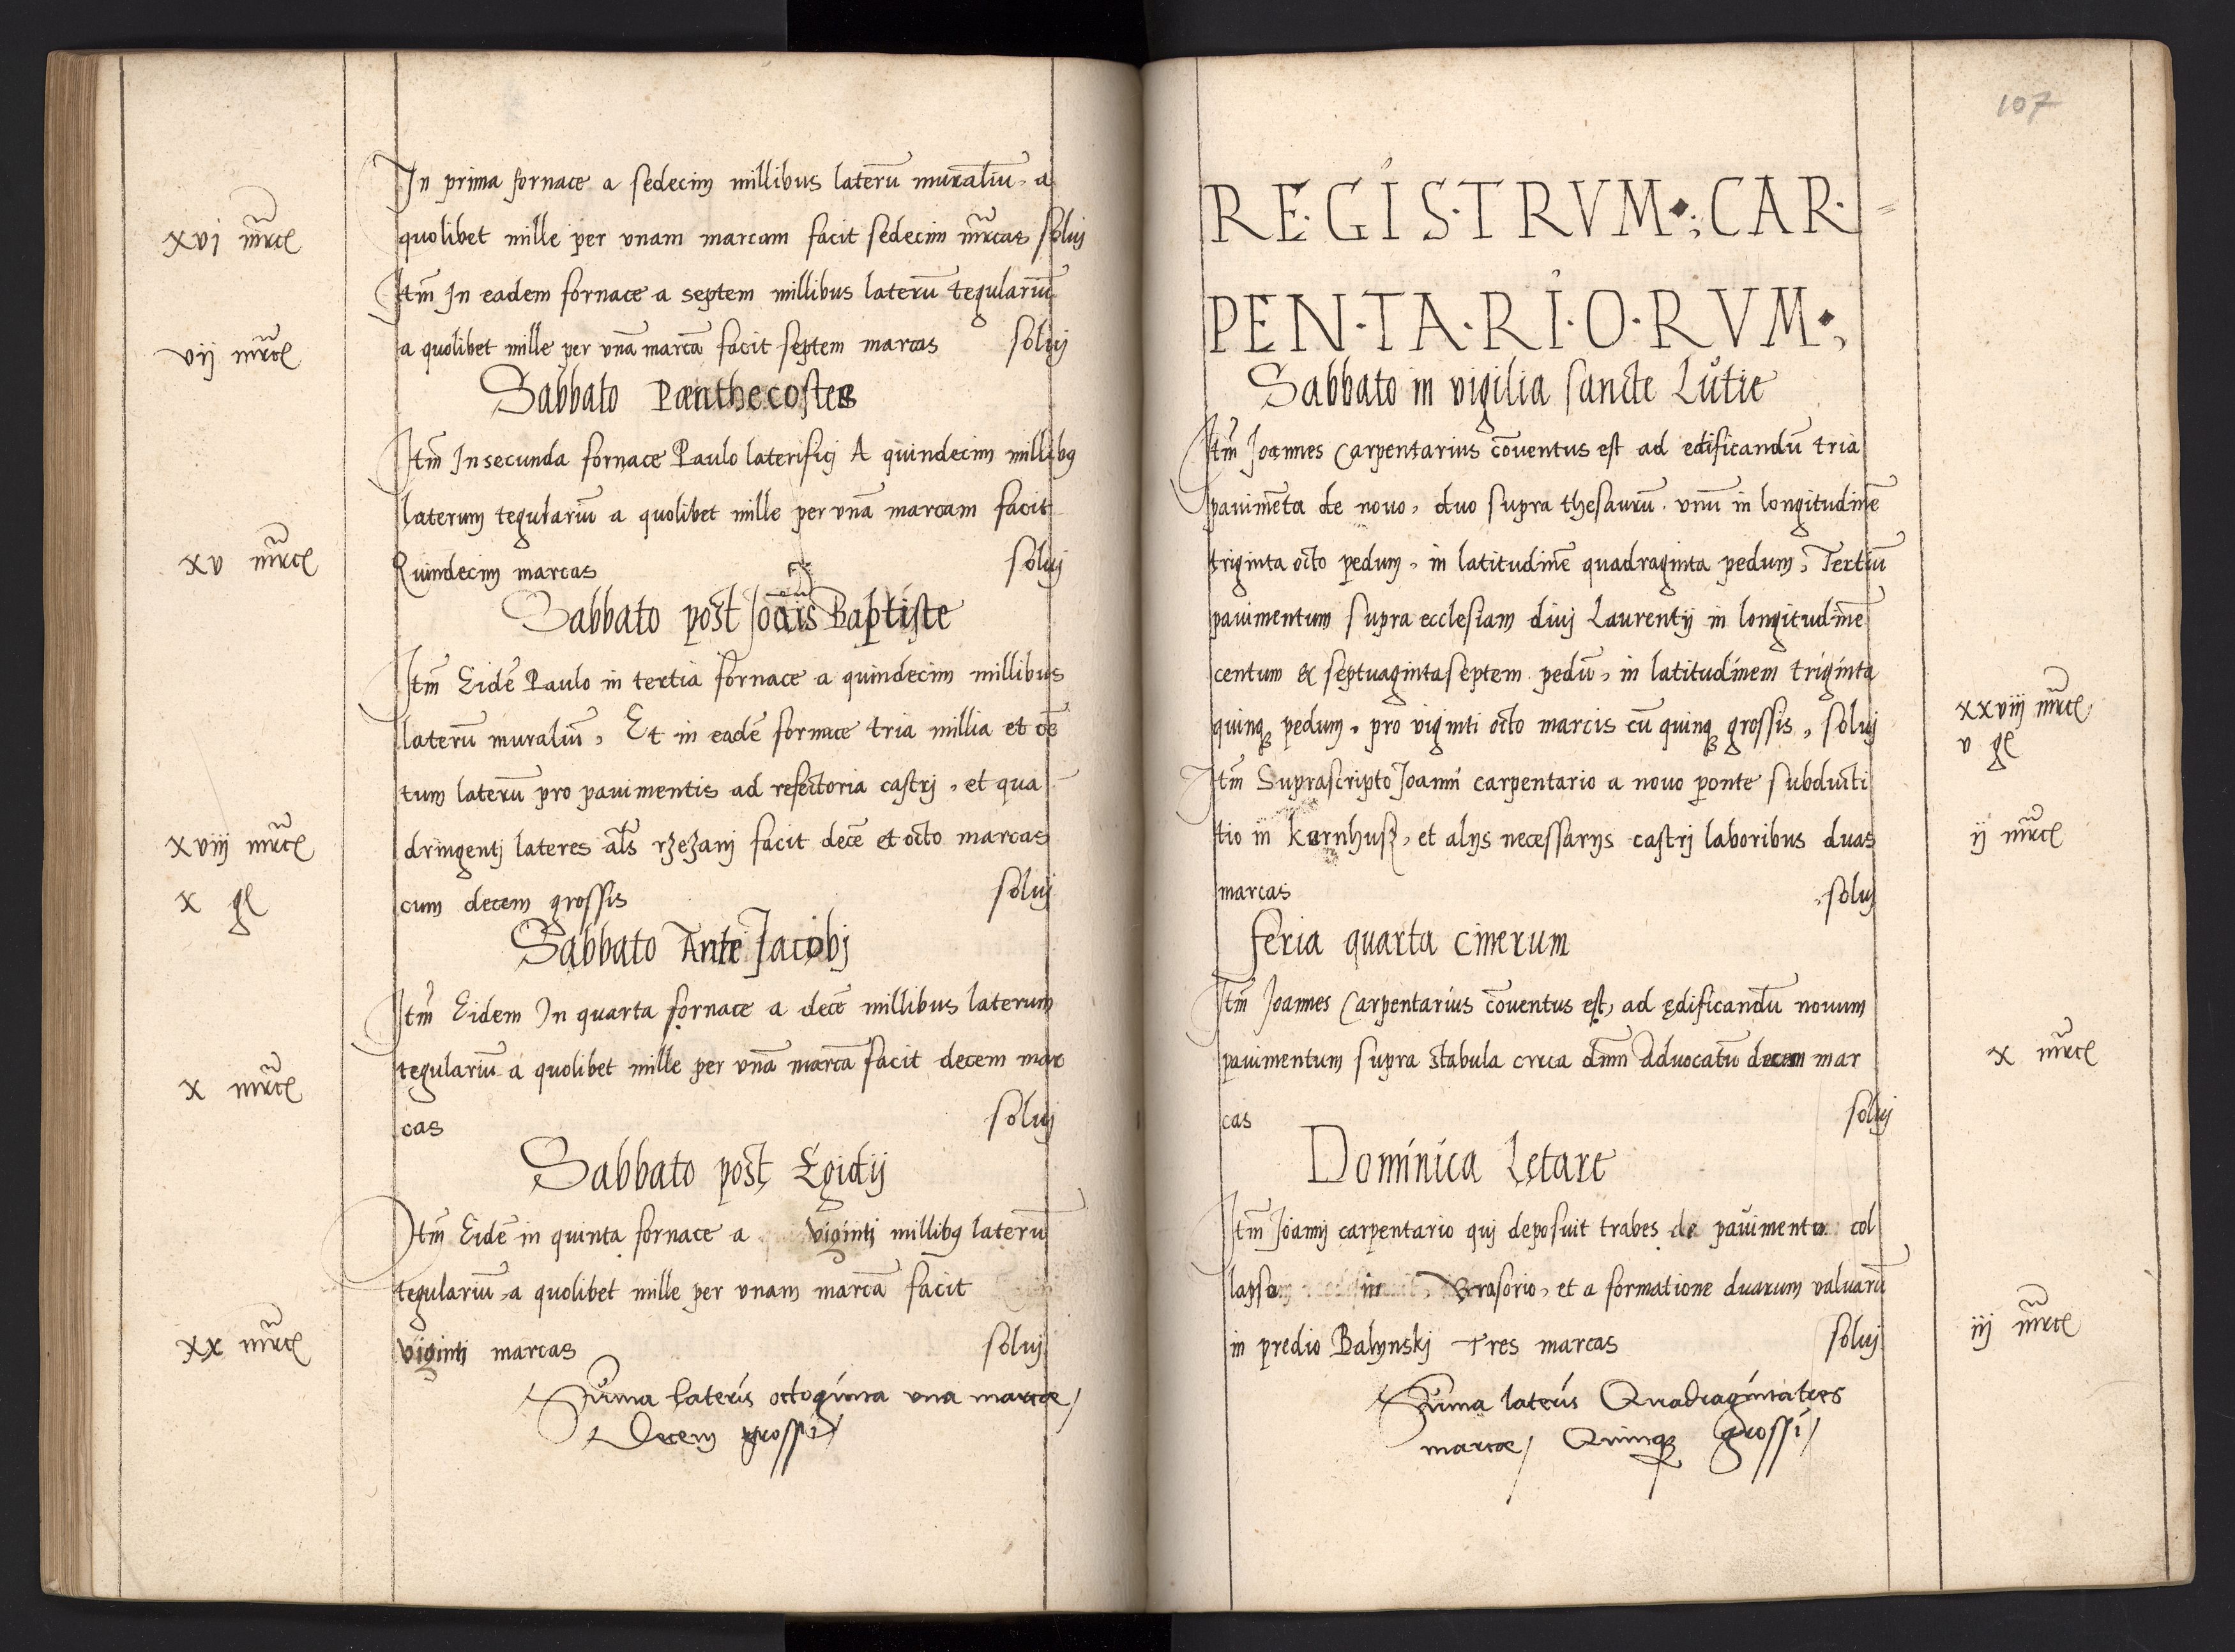 In prima fornace a sedecim millibus laterū muraliū, a
xvj mrc̄ quolibet mille per vnam marcam facit sedecim mr̄cas soluj
Itm̄ In eadem fornace a septem millibus laterū tegulariū
vij mrc̄ a quolibet mille per vnā marcā facit septem marcas soluj
Sabbato Penthecostes
Itm̄ In secunda fornace Paulo laterificj A quindecim millibꝰ
laterum tegulariū a quolibet mille per vnā marcam facit
xv mrc̄ Quindecim marcas soluj
Sabbato post Joānis Baptiste
Itm̄ Eidē Paulo in tertia fornace a quindecim millibus
laterū muraliū, Et in eadē fornace tria millia et cē
tum laterū pro pauimentis ad refectoria castrj, et qua
xviij mrc̄ dringentj lateres al̄s rzezanj facit decē et octo marcas
x gͣ cum decem grossis soluj
Sabbato Ante Jacobj
Itm̄ Eidem In quarta fornace a decē millibus laterum
x mrc̄ tegulariū a quolibet mille per vnā marcā facit decem mar
cas soluj
Sabbato post Egidij
Itm̄ Eidē in quinta fornace a vigintj millibꝰ laterū
tegulariū a quolibet mille per vnam marcā facit
xx mrc̄ vigintj marcas soluj
Sūma lateris octoginta vna marcae /
Decem grossi /
107
REGISTRVM CAR=
PENTARIORVM
Sabbato in vigilia sancte Lutie
Itm̄ Joannes Carpentarius cōuentus est ad edificandū tria
pauimēta de nouo, duo supra thesaurū. vnū in longitudinē
triginta octo pedum, in latitudinē quadraginta pedum, Tertiū
pauimentum supra ecclesiam diuj Laurentij in longitudinē
centum & septuagintaseptem pedū, in latitudinem triginta
quinqꝫ pedum, pro viginti octo marcis cū quinqꝫ grossis, soluj xxviij mrc̄
v gͣ
Itm̄ Suprascripto Joannj carpentario a nouo ponte subducti
tio in karnhusz, et alijs necessarijs castrj laboribus duas ij mrc̄
marcas soluj
feria quarta cinerum
Itm̄ Joannes Carpentarius cōuentus est, ad ędificandū nouum
pauimentum supra stabula circa dn̄m Aduocatū decem mar x mrc̄
cas soluj
Dominica Letare
Itm̄ Joannj carpentario quj deposuit trabes de pauimento col
lapso in Brasorio, et a formatione duarum valuarū
in predio Balynskj Tres marcas soluj iij mrc̄
Sūma lateris Quadragintatres
marcae / Quinqꝫ grossi /